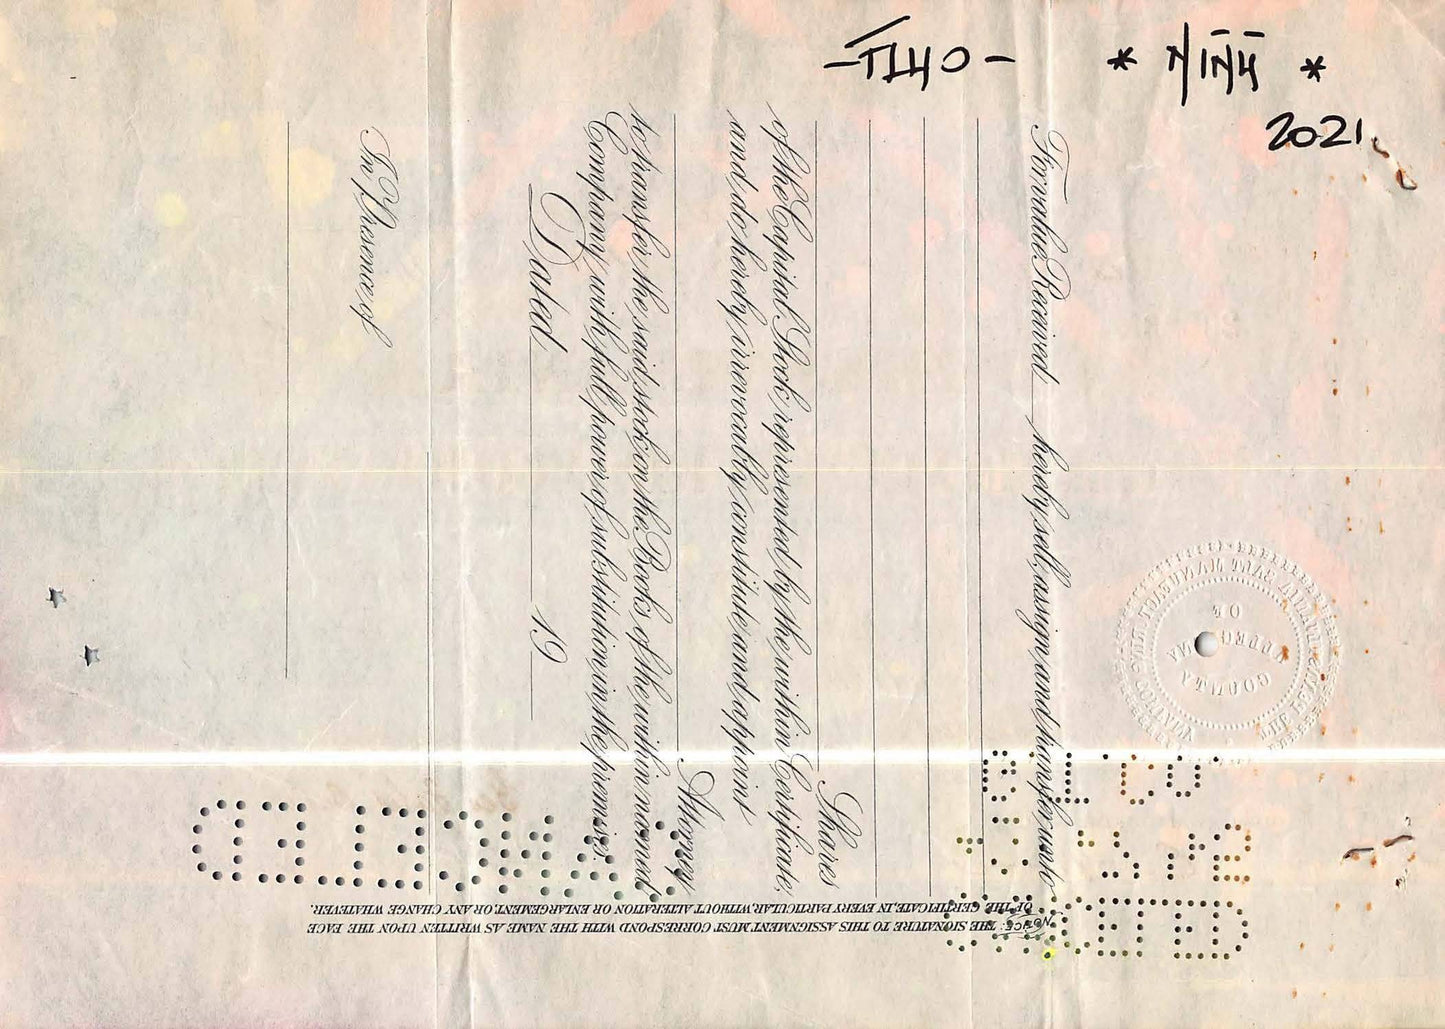 * NINA *
2021
For value Received hereby sell, assign, and transfer unto
Shares
of the Capital Stock represented by the within Certificate,
and do hereby irrevocably constitute and appoint
Attorney
to transfer the said stock on the Books of the within named
Company with full power of substitution in the premises.
Dated 19
In Presence of
NOTICE: THE SIGNATURE TO THIS ASSIGNMENT MUST CORRESPOND WITH THE NAME AS WRITTEN UPON THE FACE
OF THE CERTIFICATE, IN EVERY PARTICULAR, WITHOUT ALTERATION OR ENLARGEMENT, OR ANY CHANGE WHATEVER.
CANCELLED